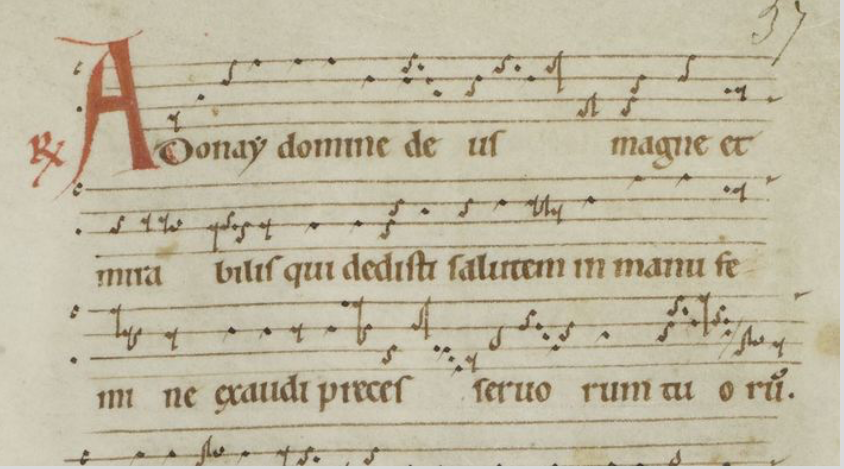 37
℞ Adonaẏ domine de us magne et
mira bilis qui dedisti salutem in manu fe
mi ne exaudi preces seruo rum tu o rū.